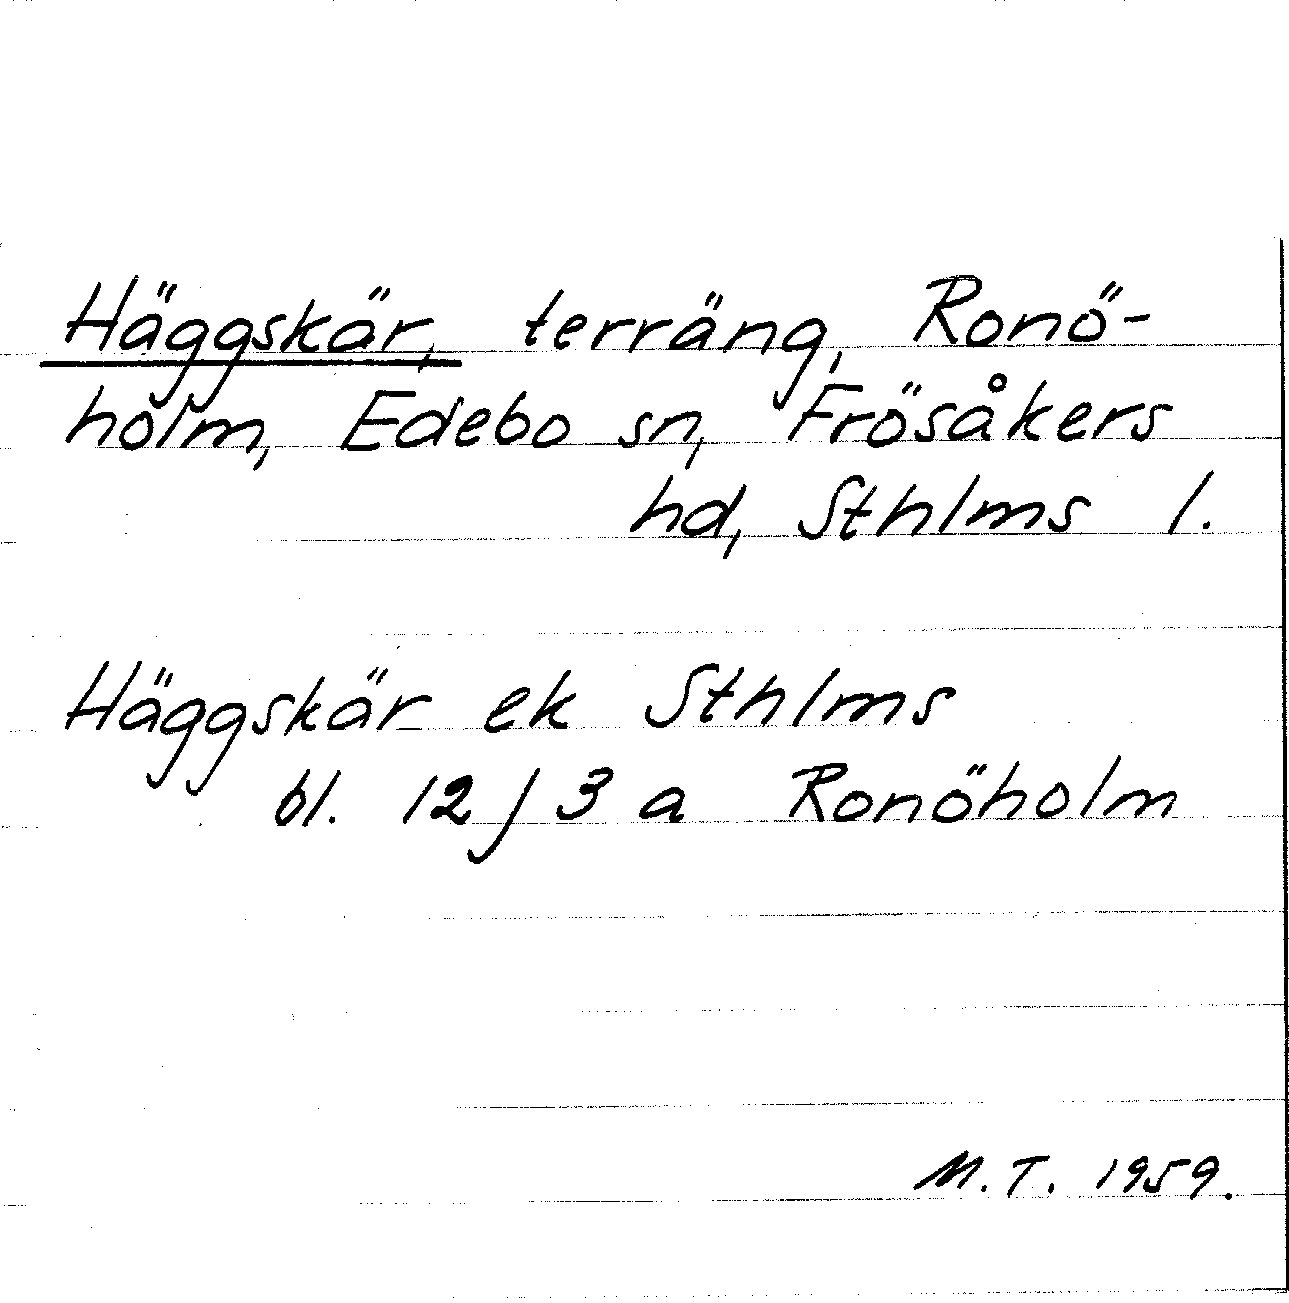 Häggskär, terräng, Ronö-
holm, Edebo sn, Frösåkers
hd, Sthlms l.
Häggskär ek Sthlms
bl. 12 J 3 a Ronöholm
M.T. 1959.